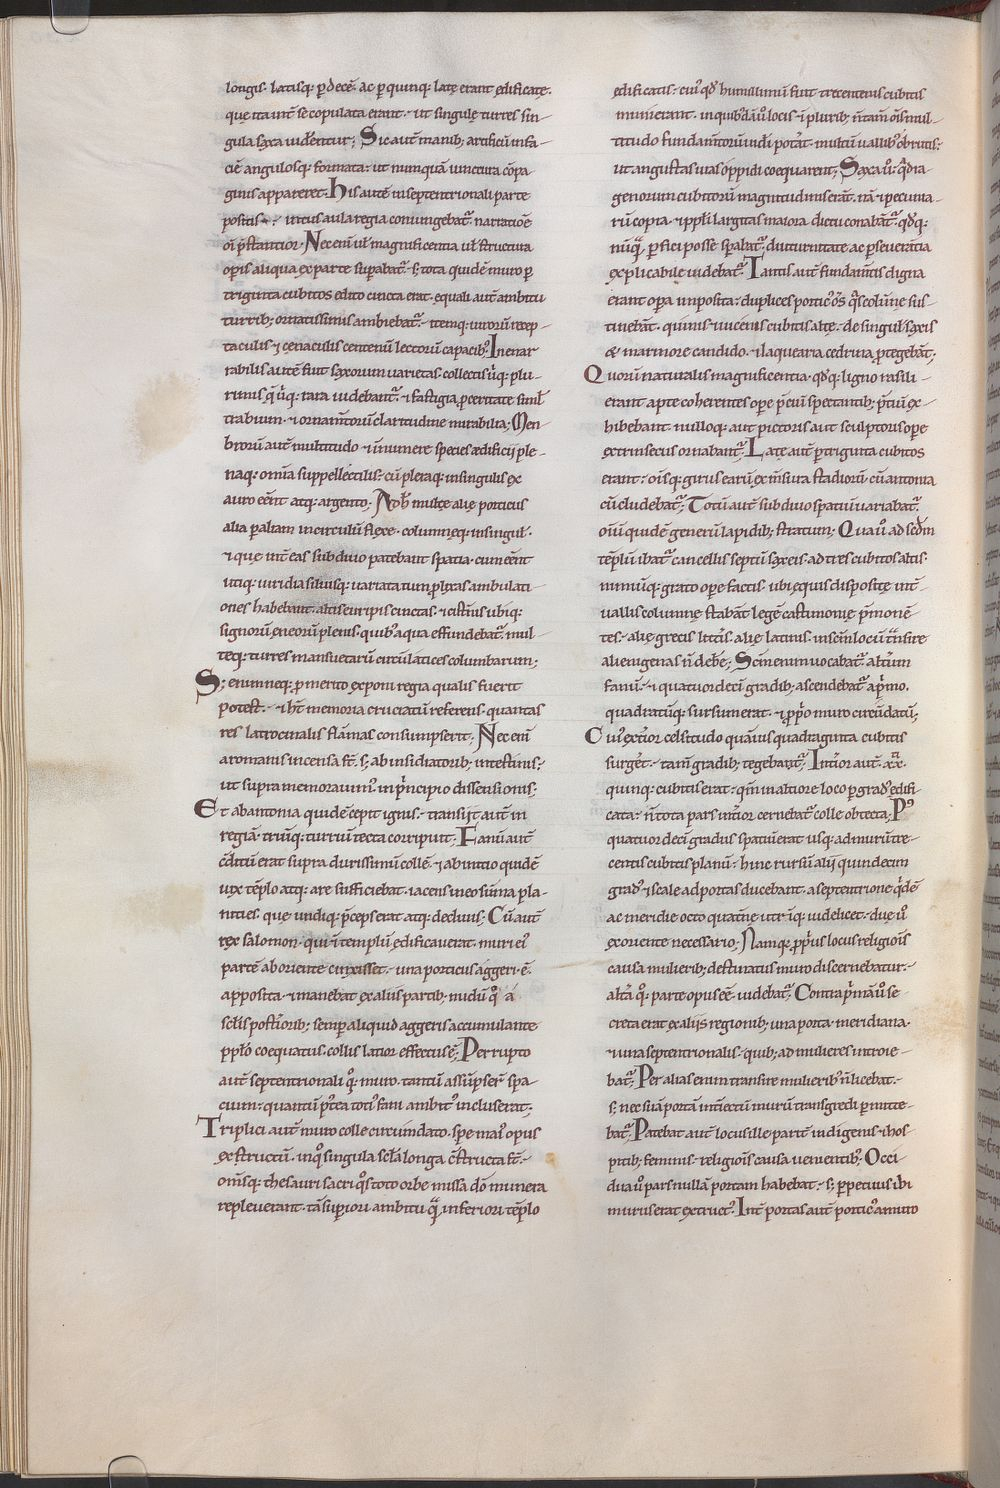 longis· latisq; p decē· ac p quinq; latę erant ędificatę·
quę ita int̄ se copulata erant· ut singulę turres sin-
gula saxa uiderentur; Sic aut̄ manib; artificū in fa-
ciē angulosq; formata· ut nunquā iunctura cōpa
ginis appareret· His autē in septentrionali parte
positis· intus aula regia coniungebat᷑· narratiōe
oī prestantior· Nec enī uł magnificentia uł structura
opis aliqua ex parte supabat᷑· s; tota quidē muro p
triginta cubitos edito cincta erat· equali autē ambitu
turrib; ornatissimis ambiebat᷑· itemq; uirorū recep-
taculis ⁊ cenaculis centenū lectorū capacib; Inenar
rabilis autē fuit saxorum uarietas· collectis u̇q; plu-
rimis quę ubiq; rara uidebant᷑· ⁊ fastigia proceritate simł
trabium· ⁊ ornam̄torū claritudine mirabilia; Mem-
brorū aut̄ multitudo ⁊ īnumere species ædificij ple-
naq; omīa suppellectilis· cū pleraq; in singulis ex
auro eēnt atq; argento· Ad h̄ multę alię porticus
alia p aliam in circulū flexę· columnęq; in singuł·
⁊ que int̄ eas sub diuo patebant spatia· cum eēnt
utiq; uiridia siluisq; uariata tum plixas ambulati-
ones habebant altis euripis cinctas· ⁊ cistnis ubiq;
signorū ęneorū plenis· quib; aqua effundebat᷑· mul-
teq; turres mansuetarū circū latices columbarum;
S; enim neq; p merito exponi regia qualis fuerit
potest· ⁊ h̄t memoria cruciatū referens· quantas
res latrocinalis flāmas consumpserit; Nec enī
a romanis incensa s̄t· s; ab insidiatorib; intestinis·
ut supra memorauim᷒ in p̄ncipio dissensionis;
Et ab antonia quidē cepit ignis· transijt aut̄ in
regiā· triūq; turriū tecta corripuit; Fanū aut̄
cōditū erat supra durissimū collē· ⁊ ab initio quidē
uix tēplo atq; arę sufficiebat iacens in eo sūma pla-
nities· quę undiq; p̄ceps erat atq; decliuis; Cū aut̄
rex salomon· qui ⁊ templū ędificauerat· muri ei᷒
partē ab oriente cinxisset· una porticus aggeri ē
apposita ⁊ manebat ex aliis partib; nudū qᵒ a
sclis postiorib; semp aliquid aggeris accumulante
ppło coequatus collis latior effectus ē; Perrupto
aut̄ septentrionali qᵒ; muro· tantū assūpser̄ spa-
cium· quantū p̄tea toti᷒ fani ambit᷒ incluserat;
Triplici aut̄ muro colle circumdato· spe mai᷒ opus
exstructū· in qᵒ singula scła longa cōstructa s̄t·
om̄sq; thesauri sacri qᵒs toto orbe missa dō munera
repleuerant· tā supiori ambitu quā inferiori tēplo
edificatis· cui᷒ qđ humillimū fuit· trecentenis cubitis
munierant· in quib;dā uᵒ locis ⁊ pluri b; n̄ tam̄ ōis mul-
titudo fundam̄torū uidi poṫat· multū uallib; obrutis·
ut angustas uias oppidi coequarent; Saxa uᵒ· quadra
genorum cubitorū magnitudinis erāt· nā ⁊ pecunia-
rū copia· ⁊ ppli largitas maiora dictu conabāt᷑· qđq;
nūquā pfici posse spabat᷑· diuturnitate ac pseuerātia
explicabile uidebat᷑; Tantis aut̄ fundam̄tis digna
erant opa imposita· duplices portic᷒ oīs qᵃs colūne sus-
tinebāt· quinis ⁊ uicenis cubitis altę· de singulis saxis
& marmore candido· ⁊ laquearia cedrina p tegebāt;
Quorū naturalis magnificentia· qđq; ligno rasili
erant apte coherentes opę p̄cū spectantib; p̄tiū ex-
hibebant· nulloq; aut pictoris aut sculptoris ope
extrinsecus ornabant᷑; Latę aut̄ p triginta cubitos
erant· oīsq; girus earū ex m̄sura stadiorū cū antonia
cū cludebat᷑; Totū aut̄ sub diuo spatiū uariabat᷑·
oīū quidē generū lapidib; stratum· Qua uᵒ ad sedm
tēplū ibat᷑ cancellis septū saxeis· ad tres cubitos altis·
nimiūq; grato opę factis· ubi ęquis dispositę int̄
uallis columnę stabāt· legē castimonię p̄monē-
tes· alię grecis litt̄is· alię latinis· in sc̄m locū t̄nsire
alienigenas n̄ debe; Scm enim uocabat᷑ alt̄um
fanū· ⁊ quatuordecī gradib; ascendebat᷑ a p̄mo·
quadratūq; sursum erat· ⁊ ppᵒ muro circūdatū;
Cui᷒ ext̄ior celsitudo quāuis quadraginta cubitis
surg̅et· tam̄ gradib; tegebant᷑; Int̄ior aut̄· xx·
quinq; cubitis erat· qm̄ in altiore loco p grad᷒ edifi
cata· n̄ tota pars int̄ior cernebat᷑ colle obtecta; P᷒
quatuordecī gradus spatiū erat usq; ad murū tre-
centis cubitis planū· hinc rursū alii quindecim
grad᷒ ⁊ scale ad portas ducebant· a septentrione qⁱdē
ac meridie octo quatnę utrīq; uidelicet· duę uᵒ
ex oriente necessario; Namq; pprius locus religiōis
causa mulierib; destinatus muro discernebatur·
altā qᵒ; parte opus eē uidebat᷑; Contra p̄mā uᵒ se-
creta erat ex aliis regionib; una porta meridiana·
⁊ una septentrionalis· quib; ad mulieres introie-
bat᷑; Per alias enim transire mulierib; n̄ licebat·
s; nec suā portā intiectū murū transgredi pmitte-
bat᷑; Patebat aut̄ locus ille parit̄ indigenis ⁊ hos-
pitib; feminis· religiōis causa uenientib; Occi
dua uᵒ pars nullā portam habebat· s; ppetuus ibi
murus erat extruct᷒; Int̄ portas aut̄ portic᷒ a muro